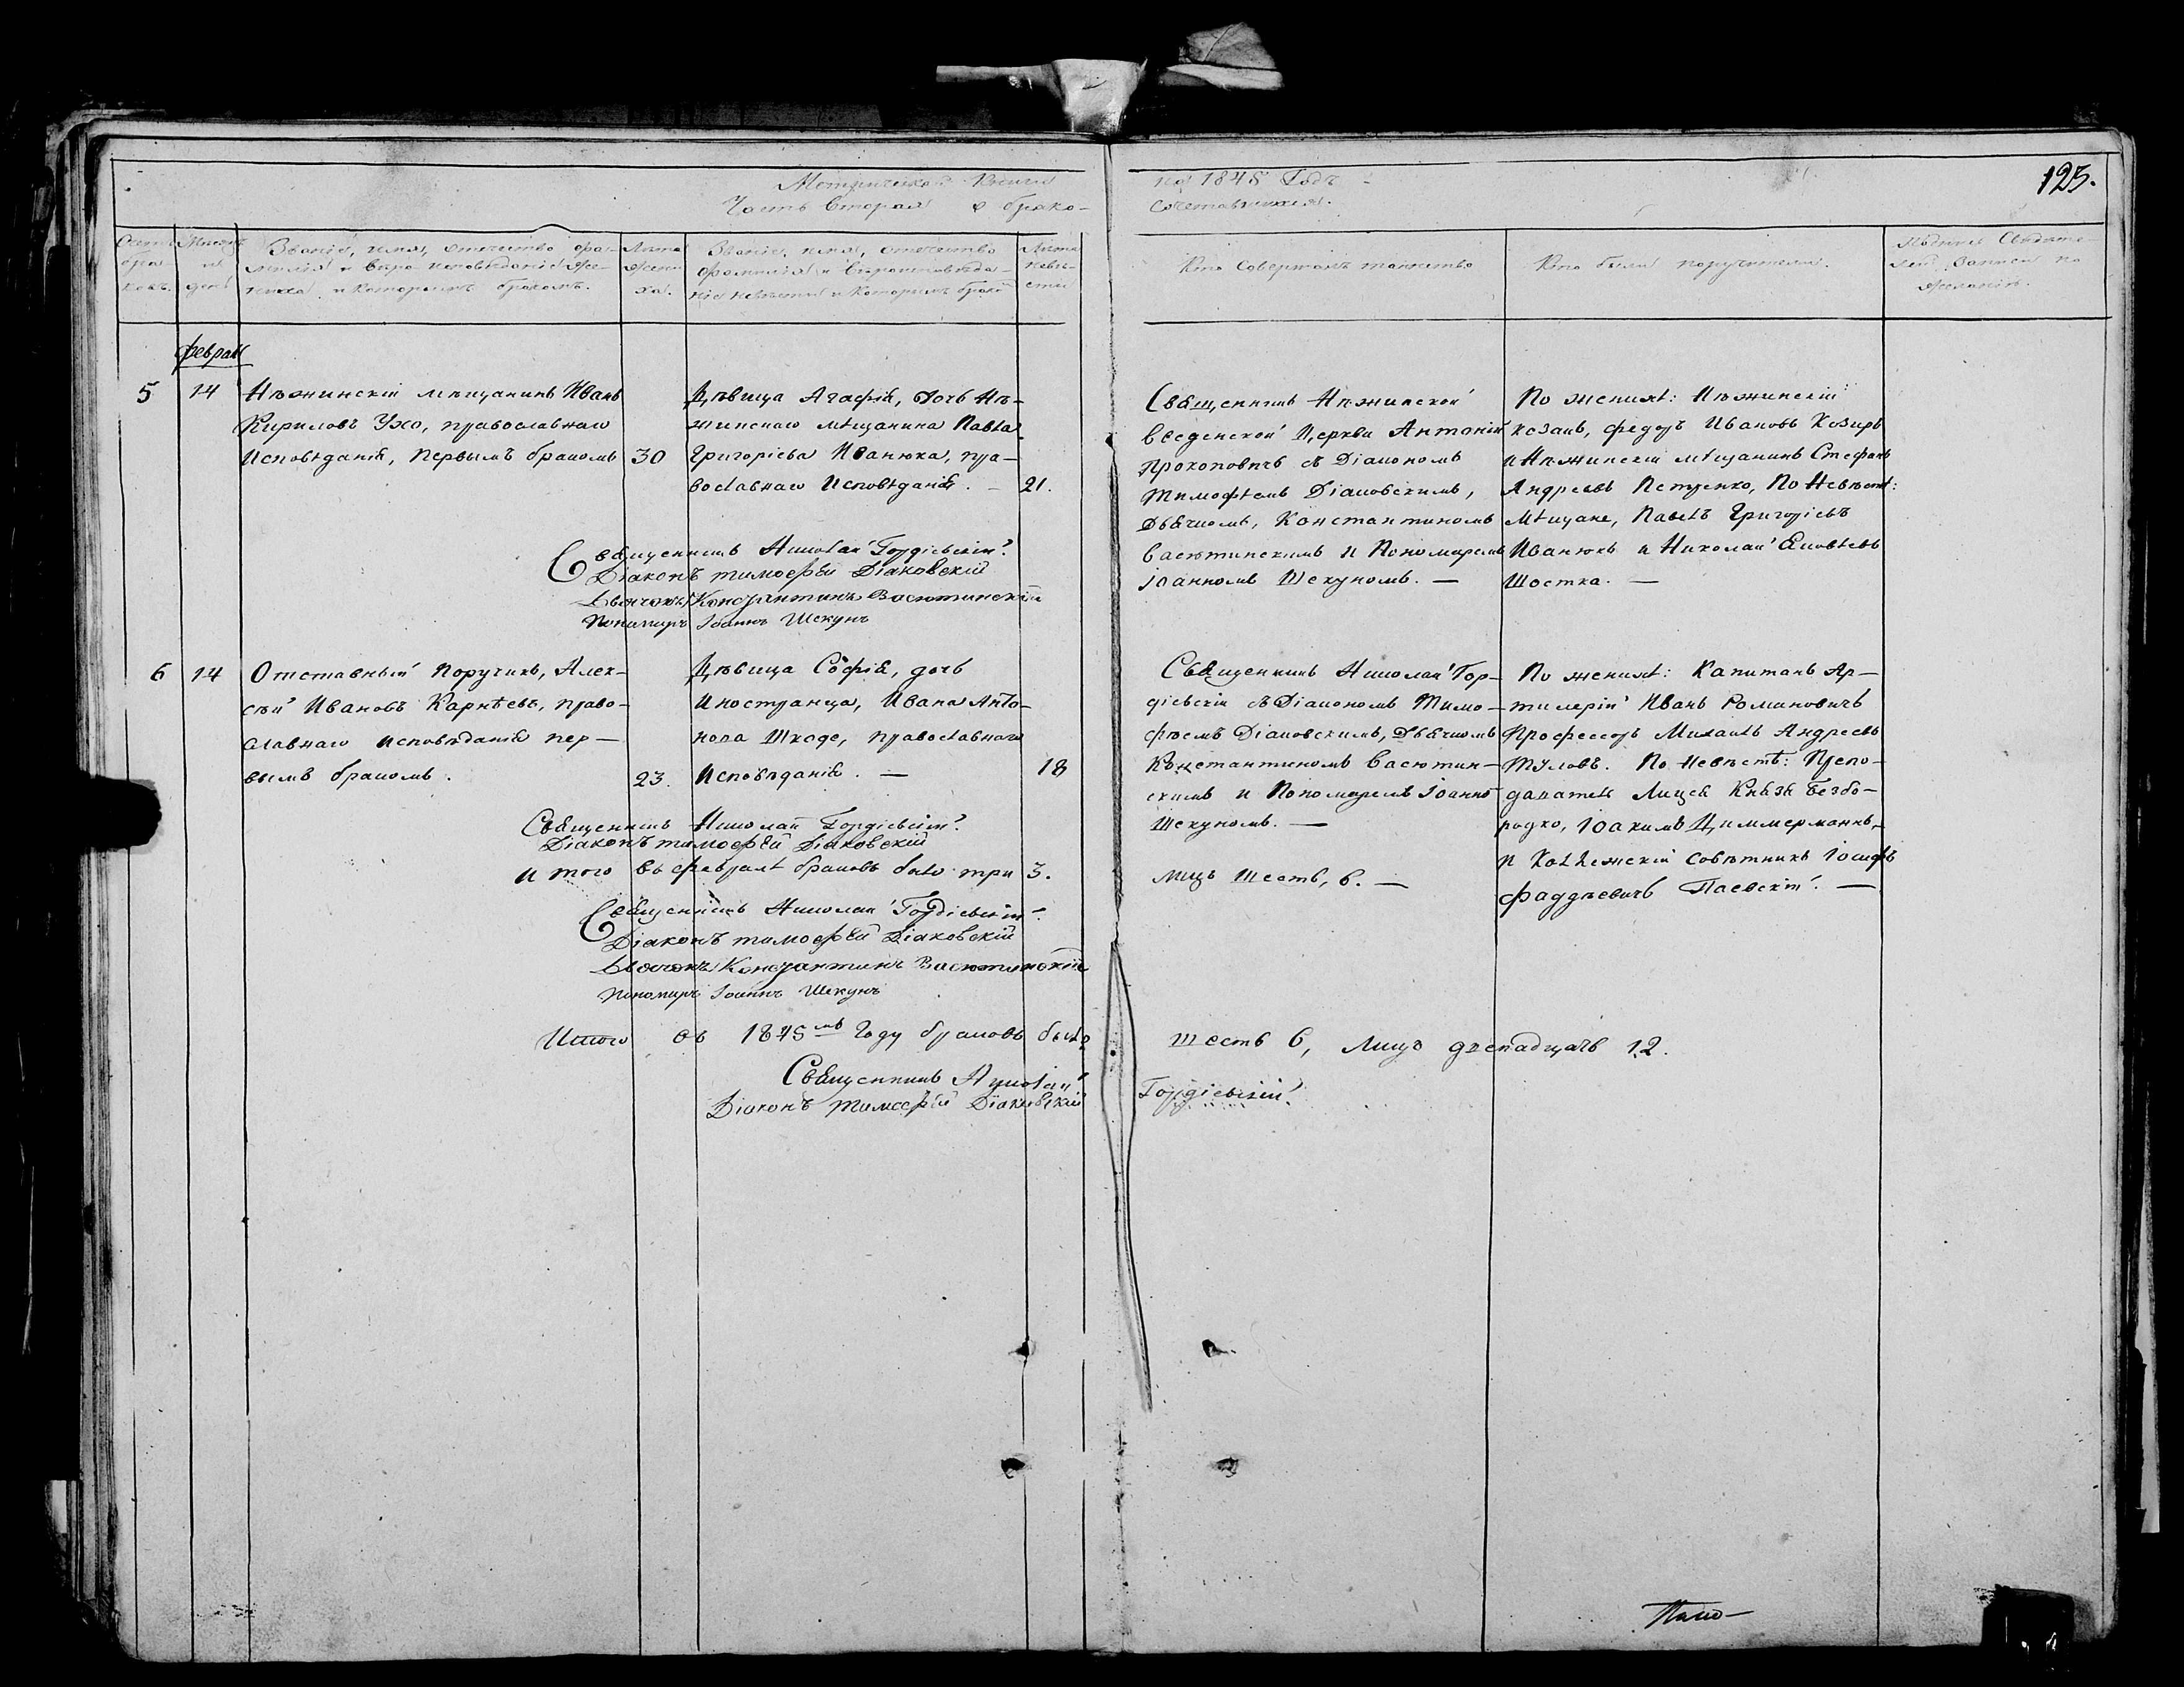 125.
Метрической Книги
Часть Вторая о брако-
на 1845 Годъ
сочетавшихся.
Счетъ браковъ.
Мѣсяцъ и день
Званіе, имя, отечество фа-
милія и вѣроисповѣданіе же-
ниха и которымъ бракомъ.
Лѣта
жени
ха.
Званіе, имя, отечество
фамилія и вѣроисповѣда-
ніе невѣсты и которымъ брако
Лѣта
невѣ-
сты
Кто совершалъ таинство
Кто были поручители.
Свидѣте-
лей записи по
желанію.
Февраль
5
14
Нѣжинскій мѣщанинъ Иванъ
Кириловъ Ухо, православнаго
Исповѣданія, Первымъ бракомъ
30
Дѣвица Агафія, дочь Нѣ-
жинскаго мѣщанина Павла
Григоріева Иванюка, пра-
вославнаго Исповѣданія. —
21.
Священникъ Нѣжинской
Введенской Церкви Антоній
Прокоповичъ съ Діакономъ
Тимофѣемъ Діаковскимъ,
Дьячкомъ, Константиномъ
Васютинскимъ и Пономаремъ
Іоанномъ Шекуномъ. —
По женихѣ: Нѣжинскій
козакъ, Федоръ Ивановъ Козырь
и Нѣжинскій мѣщанинъ Стефанъ
Андреевъ Петренко, По Невѣстѣ:
Мѣщане, Павелъ Григоріевъ
Иванюкъ и Николай Яковлевъ
Шостка. —
Священникъ Николай Гордіевскій.
Діаконъ Тимофѣй Діаковскій
Дьячокъ Константинъ Васютинскій
Пономарь Іоаннъ Шекунъ
6
14
Отставный Поручикъ, Алек-
сѣй Ивановъ Карнѣевъ, право-
славнаго исповѣданія пер-
вымъ бракомъ.
23.
Дѣвица Софія, дочь
Иностранца, Ивана Анто-
нова Шкоде, православнаго
Исповѣданія. —
18
Священникъ Николай Гор-
діевскій съ Діакономъ Тимо-
фѣемъ Діаковскимъ, Дьячкомъ
Константиномъ Васютин-
скимъ и Пономаремъ Іоанно
Шекуномъ. —
По женихѣ: Капитанъ Ар-
тилеріи Иванъ Романовичъ
Профессоръ Михаилъ Андреевъ
Туловъ. По Невѣстѣ: Препо-
даватель Лицея Князя Безбо-
родко, Іоакимъ Циммерманнъ,
и Коллежскій совѣтникъ Іосифъ
Фаддѣевичъ Паевскій. —
Священникъ Николай Гордіевскій.
Діаконъ Тимофѣй Діаковскій
И того въ февралѣ браковъ было три 3.
лицъ шесть, 6. —
Священникъ Николай Гордіевскій.
Діаконъ Тимофѣй Діаковскій
Дьячокъ Константинъ Васютинскій
Пономарь Іоаннъ Шекунъ
Итого въ 1845мъ Году браковъ было
шесть 6, Лицъ двенадцать 12.
Священникъ Николай
Гордіевскій.
Діаконъ Тимофѣй Діаковскій